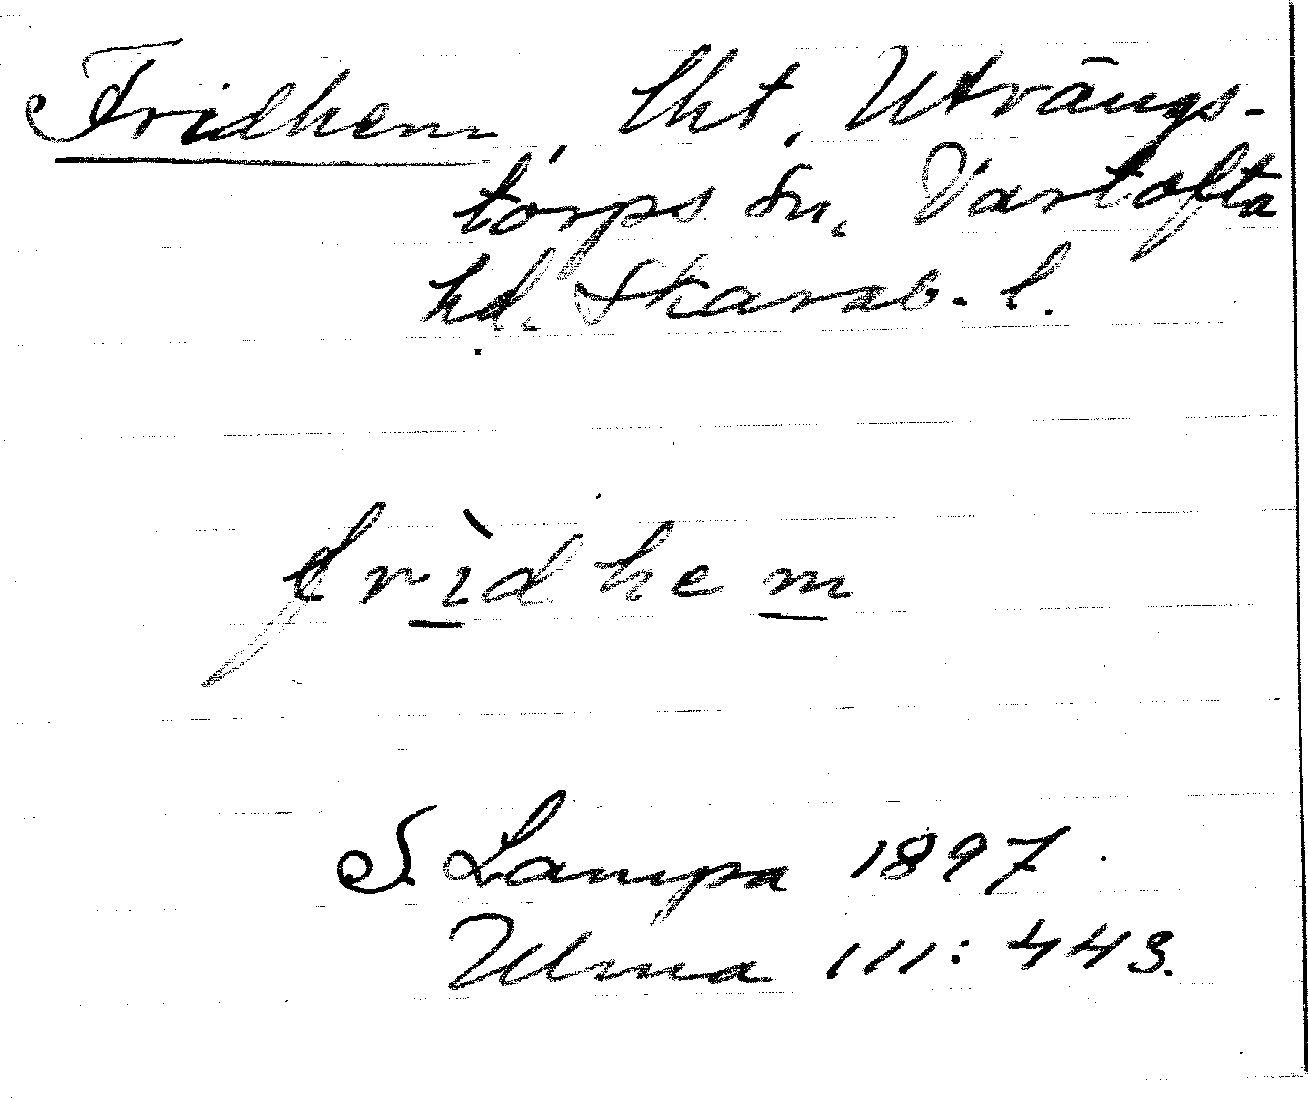 Fridhem, lht, Utvängs-
torps sn, Vartofta
hd. Skarab. l.
frìdhem
S Lampa 1897.
Ulma 111: 443.